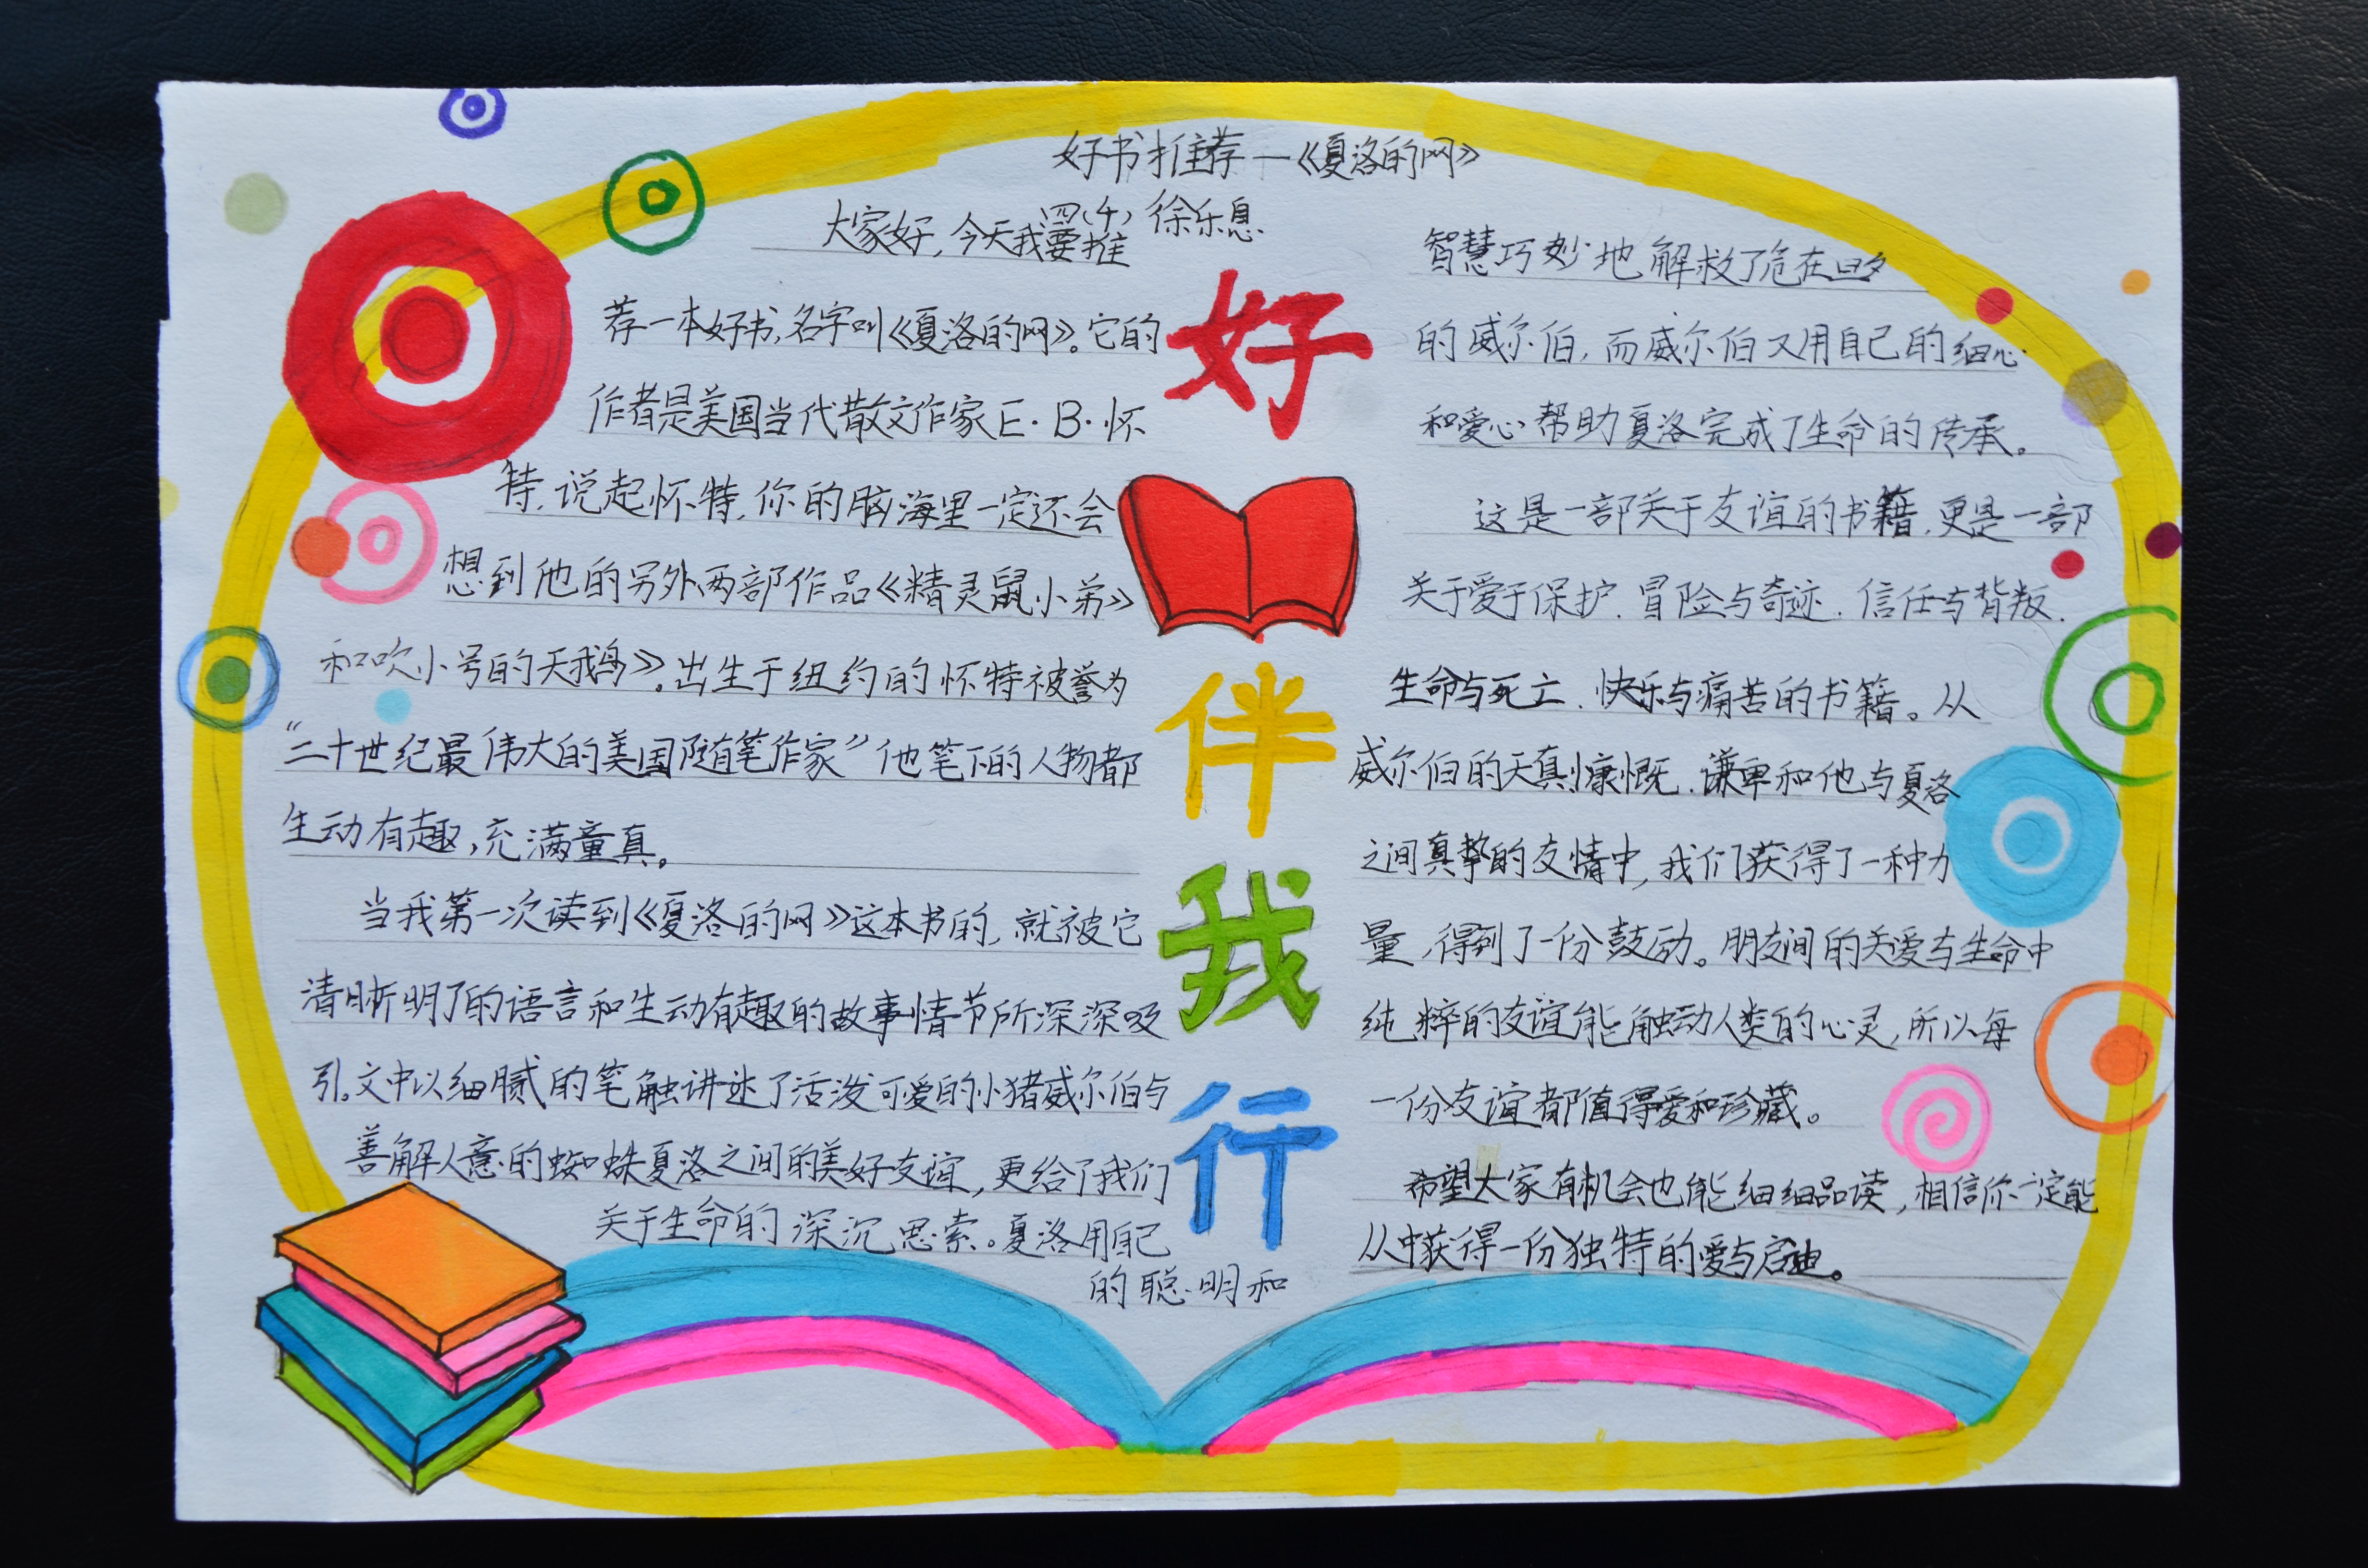 好书推荐—《夏洛的网》
四(4) 徐乐息
大家好,今天我要推
荐一本好书,名字叫《夏洛的网》。它的
作者是美国当代散文作家E·B·怀
特,说起怀特,你的脑海里一定还会
想到他的另外两部作品《精灵鼠小弟》
和吹小号的天鹅》。出生于纽约的怀特被誉为
“二十世纪最伟大的美国随笔作家”他笔下的人物都
生动有趣,充满童真。
当我第一次读到《夏洛的网》这本书的,就被它
清晰明了的语言和生动有趣的故事情节所深深吸
引。文中以细腻的笔触讲述了活泼可爱的小猪威尔伯与
善解人意的蜘蛛夏洛之间的美好友谊,更给了我们
关于生命的深沉思索。夏洛用自己
的聪明和
好
伴
我
行
智慧巧妙地解救了危在旦夕
的威尔伯,而威尔伯又用自己的细心
和爱心帮助夏洛完成了生命的传承。
这是一部关于友谊的书籍,更是一部
关于爱于保护、冒险与奇迹、信任与背叛、
生命与死亡、快乐与痛苦的书籍。从
威尔伯的天真慷慨、谦卑和他与夏洛
之间真挚的友情中,我们获得了一种力
量,得到了一份鼓动。朋友间的关爱与生命中
纯粹的友谊能触动人类的心灵,所以每
一份友谊都值得爱和珍藏。
希望大家有机会也能细细品读,相信你一定能
从中获得一份独特的爱与启迪。